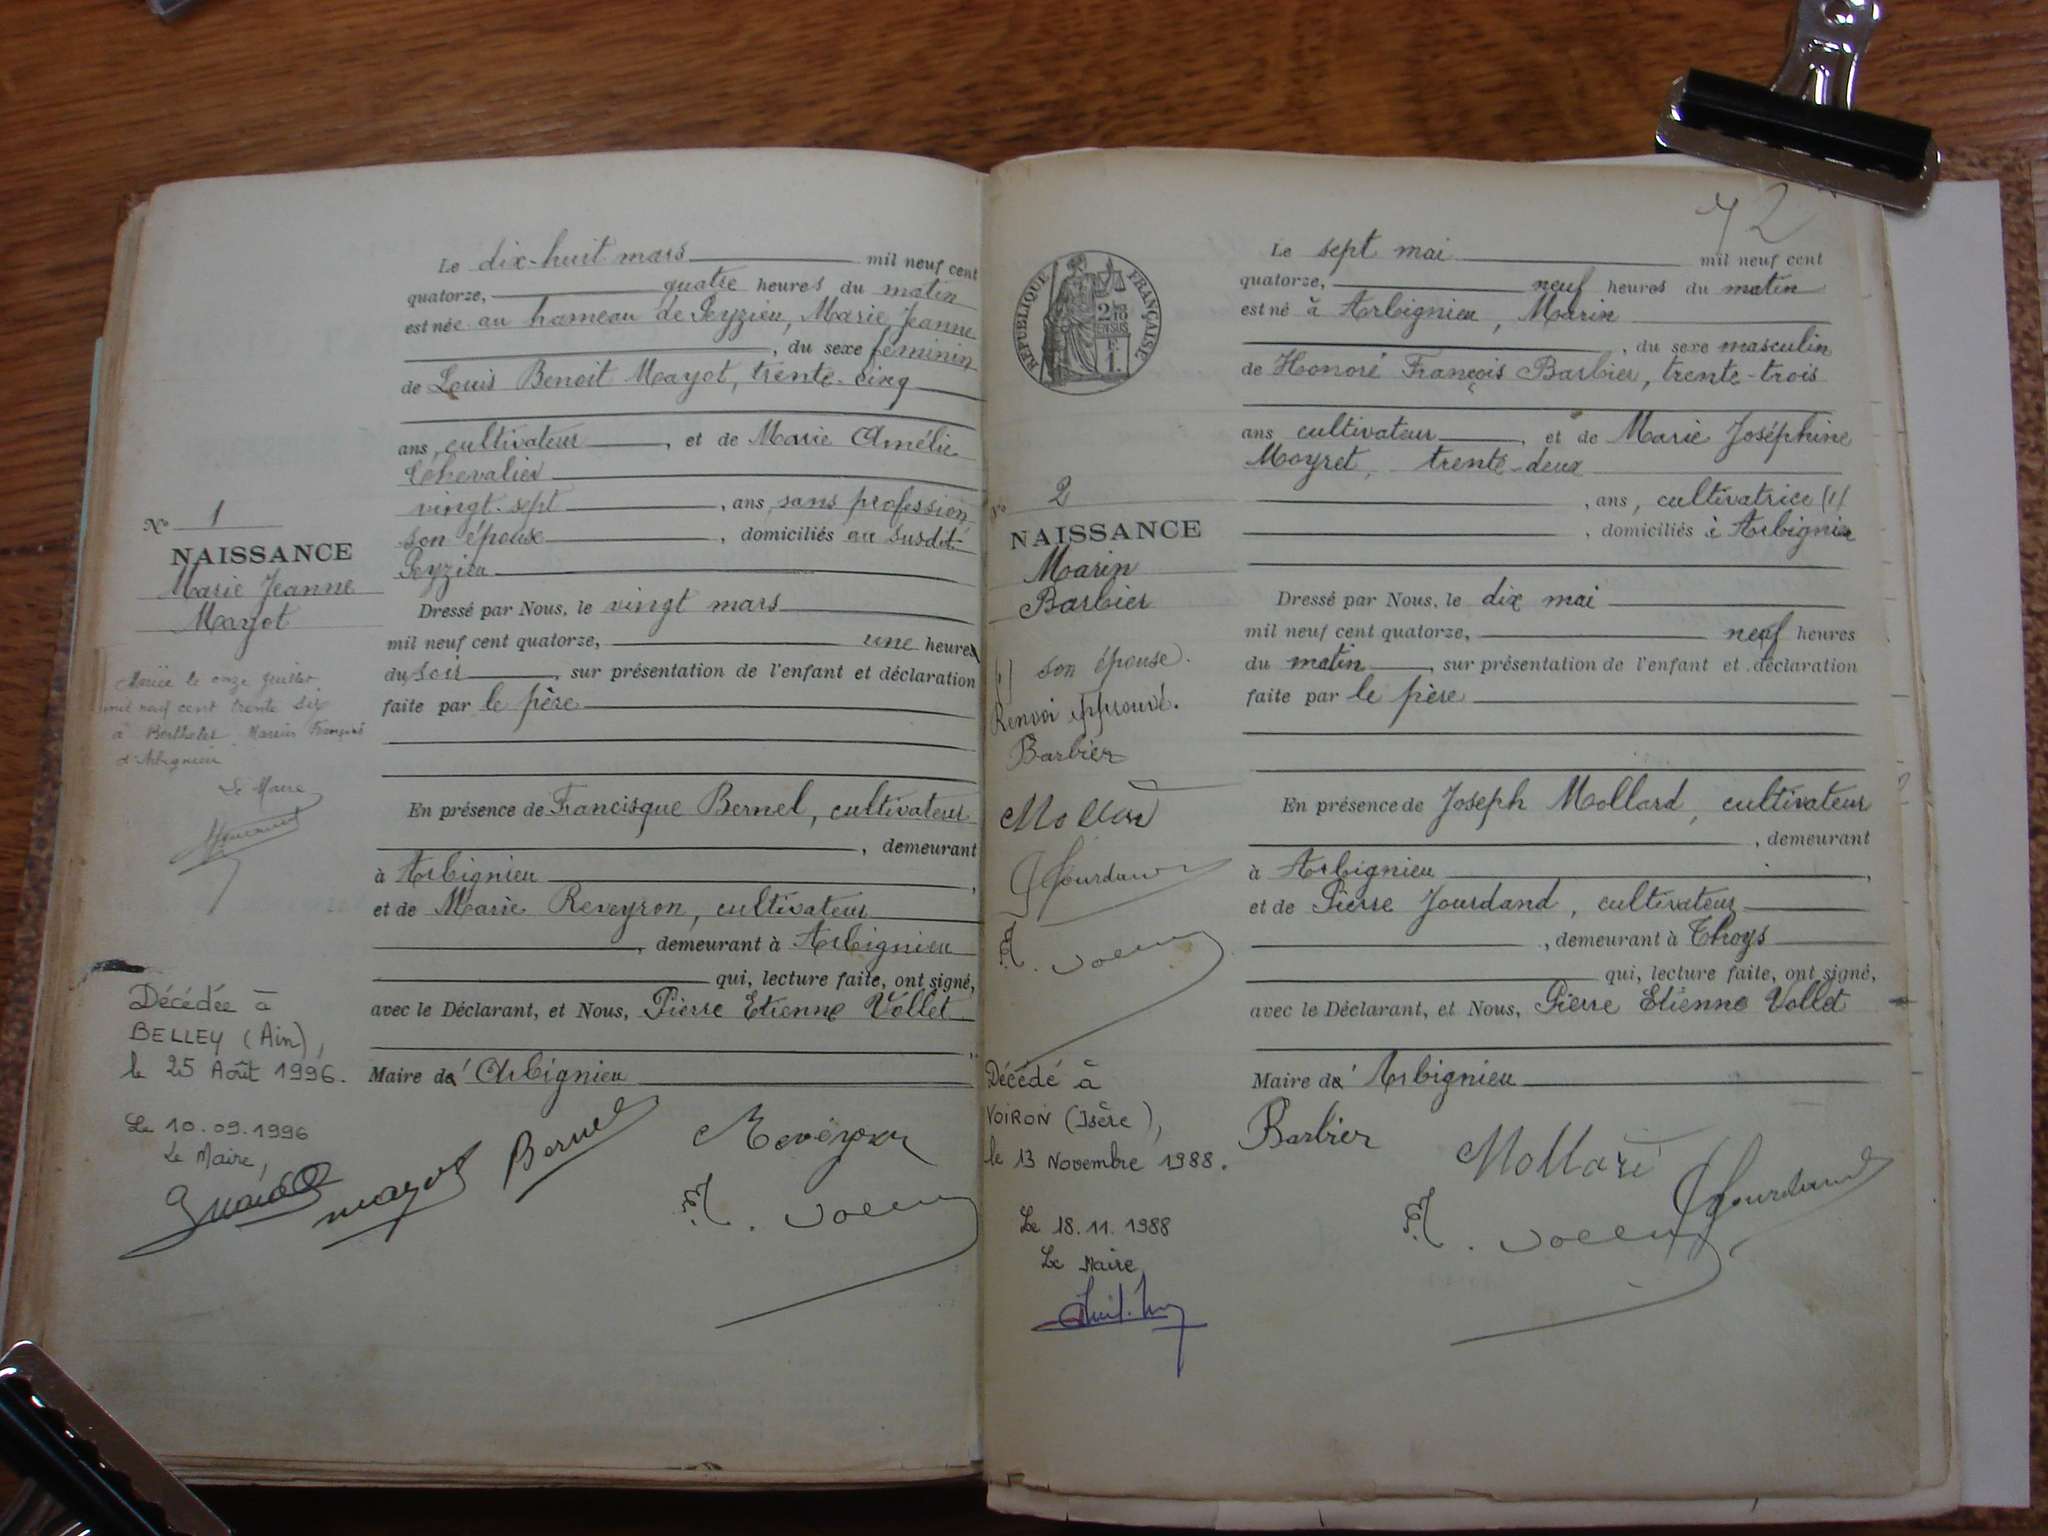 Le dix-huit mars mil neuf cent
quatorze, quatre heures du matin
est née au hameau de Peyzieu, Marie Jeanne
, du sexe féminin
de Louis Benoit Mayot, trente-cinq
ans, cultivateur, et de Marie Amélie
Chevalier
vingt-sept, ans, sans profession,
son épouse, domiciliés au susdit
Peyzieu
Nº 1
NAISSANCE
Marie Jeanne
Mayot
Dressé par Nous, le vingt mars
mil neuf cent quatorze, une heures
du soir, sur présentation de l'enfant et déclaration
faite par le père
Mariée le onze juillet
mil neuf cent trente six
à Berthelet Marius François
d'Arbignieu
Le Maire
En présence de Francisque Bernel, cultivateur
, demeurant
à Arbignieu,
et de Marie Reveyron, cultivateur
, demeurant à Arbignieu
qui, lecture faite, ont signé,
avec le Déclarant, et Nous, Pierre Etienne Vollet
Maire d'Arbignieu
Décédée à
BELLEY (Ain),
le 25 Août 1996.
Le 10.09.1996
Le Maire,
mayot Bernel Reveyron
72
RÉPUBLIQUE FRANÇAISE
Le sept mai mil neuf cent
quatorze, neuf heures du matin
est né à Arbignieu, Marin
, du sexe masculin
de Honoré François Barbier, trente-trois
ans cultivateur, et de Marie Joséphine
Moyret, trente-deux
, ans, cultivatrice (1)
, domiciliés à Arbignieu
Nº 2
NAISSANCE
Marin
Barbier
(1) son épouse.
Renvoi approuvé.
Barbier
Mollard
Jourdand
Dressé par Nous, le dix mai
mil neuf cent quatorze, neuf heures
du matin, sur présentation de l'enfant et déclaration
faite par le père
En présence de Joseph Mollard, cultivateur
, demeurant
à Arbignieu,
et de Pierre Jourdand, cultivateur
, demeurant à Thoys
qui, lecture faite, ont signé,
avec le Déclarant, et Nous, Pierre Etienne Vollet
Maire d'Arbignieu
Décédé à
VOIRON (Isère),
le 13 Novembre 1988.
Le 18.11.1988
Le Maire
Barbier Mollard Jourdand